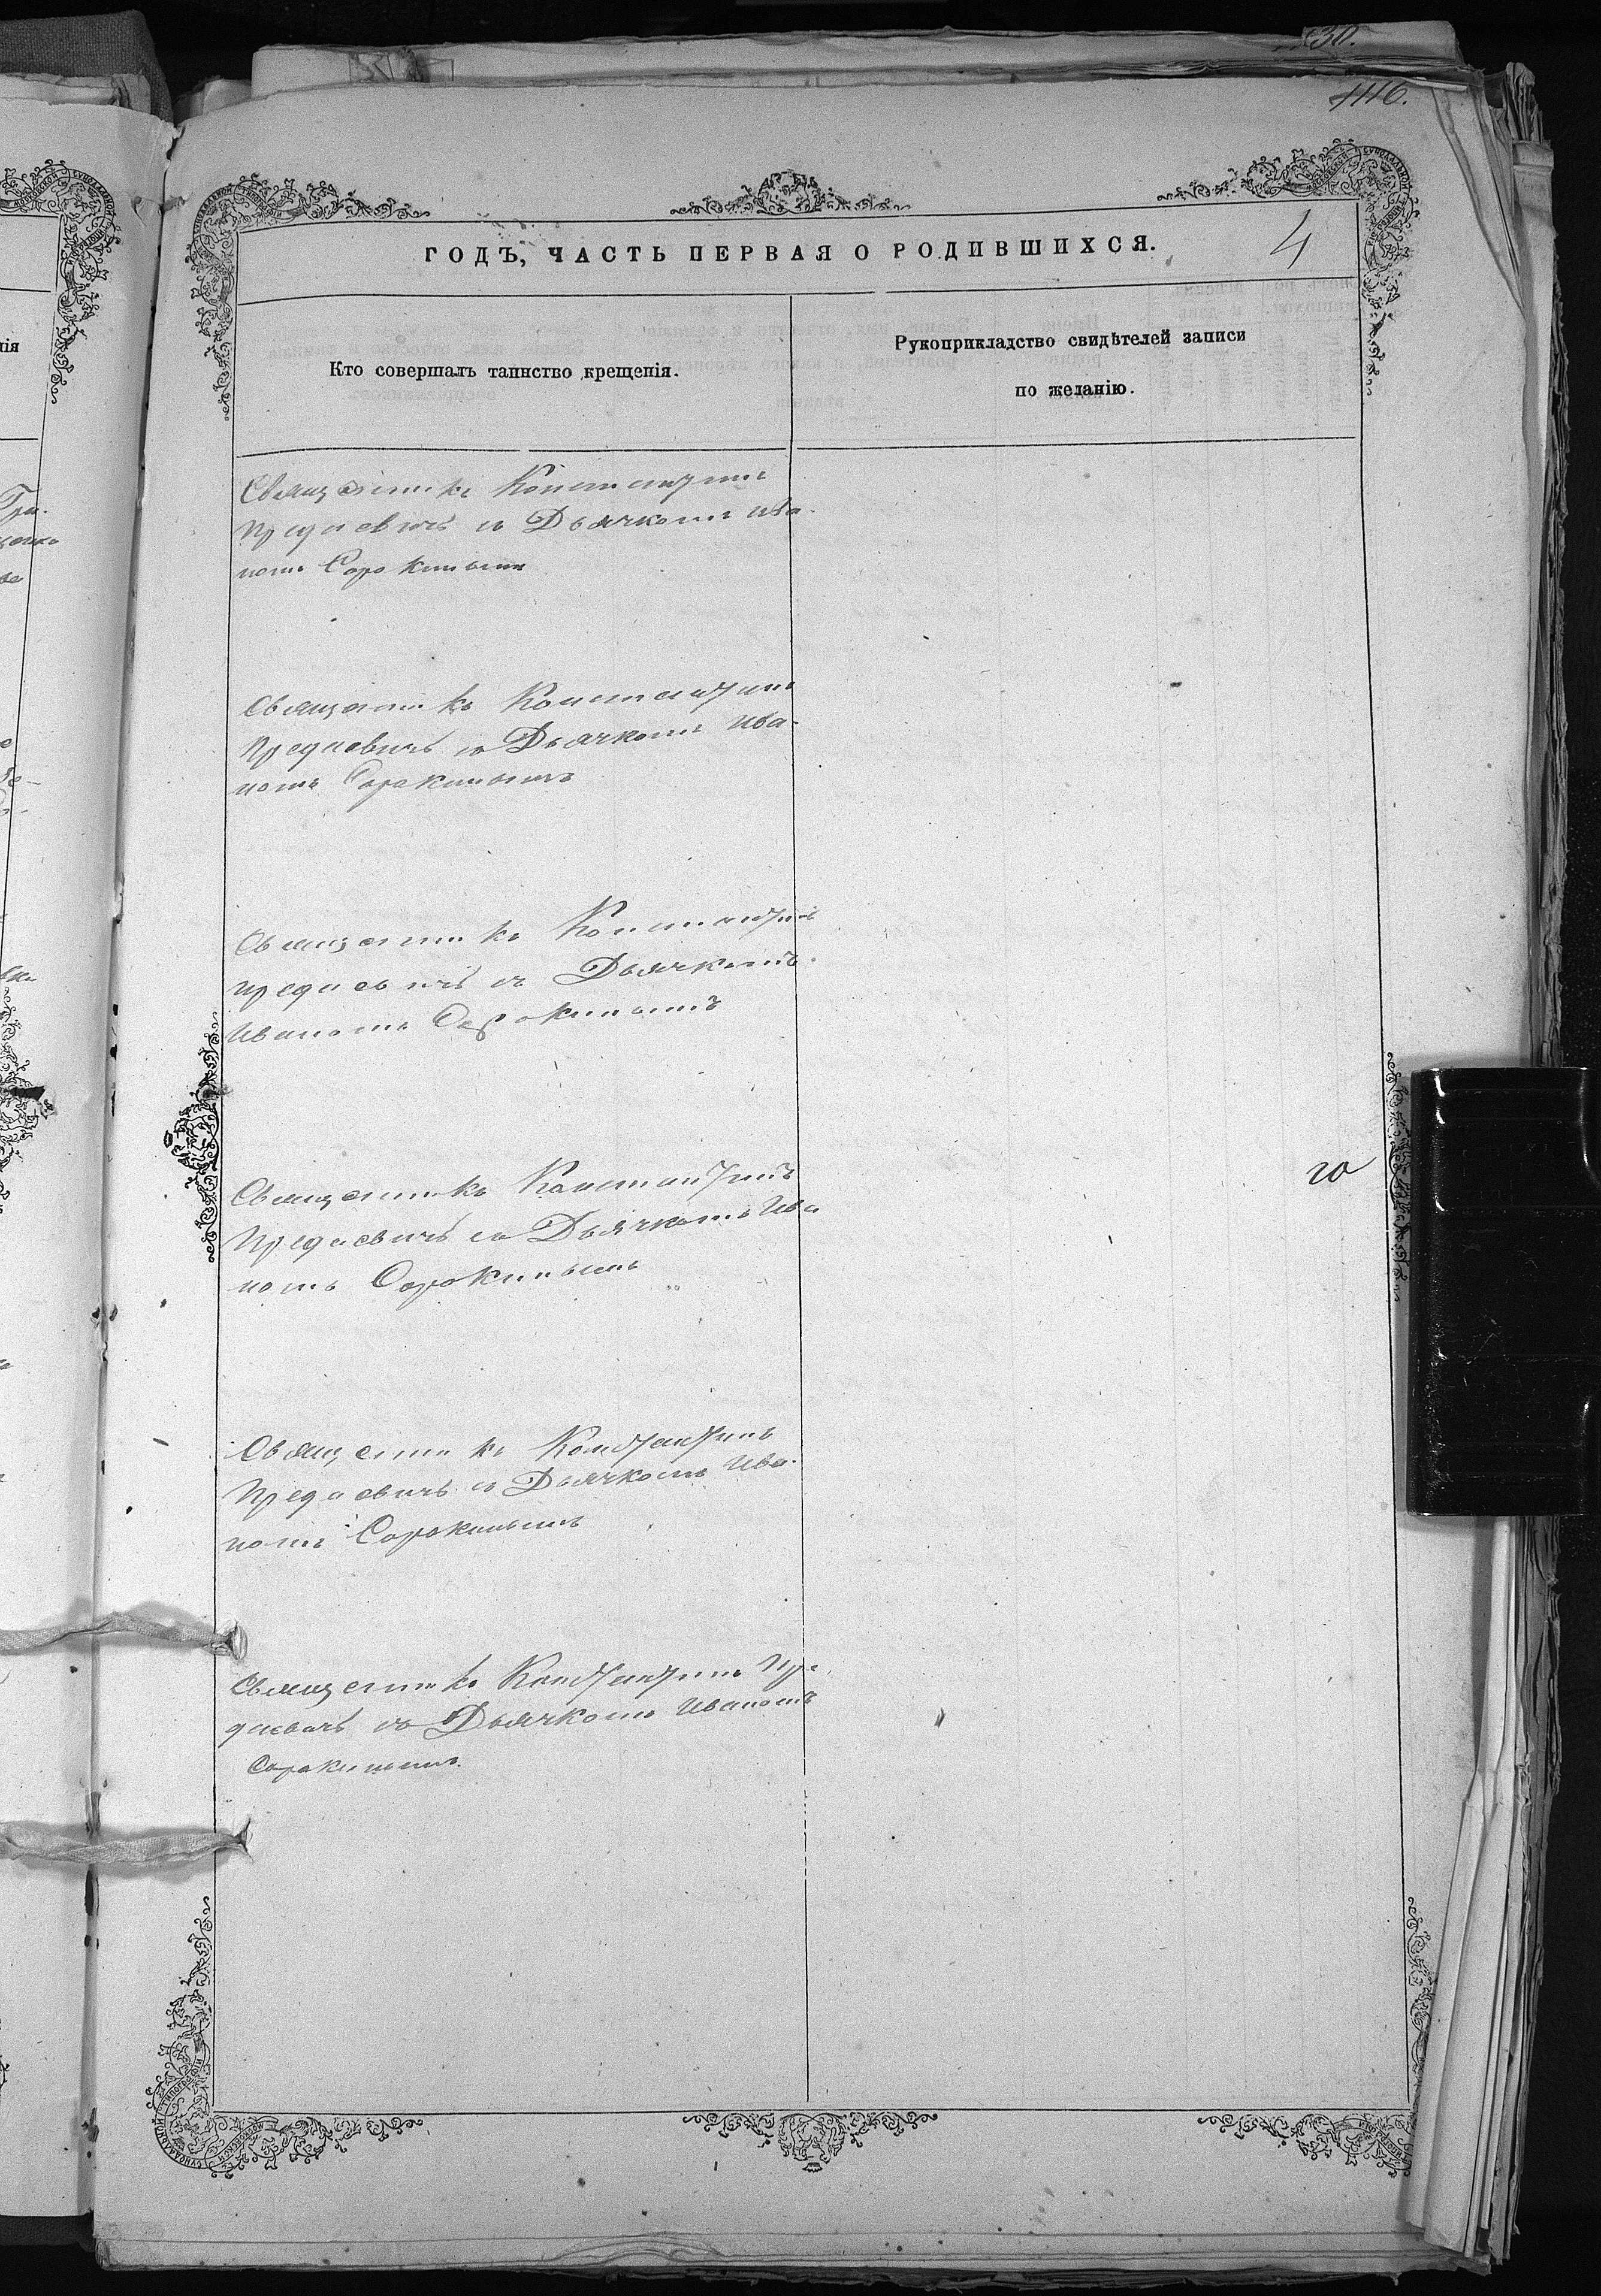 30.
1116.
ГОДЪ, ЧАСТЬ ПЕРВАЯ О РОДИВШИХСЯ.
4
Кто совершалъ таинство крещенія.
Рукоприкладство свидѣтелей записи
по желанію.
Священникъ Константинъ
Предіевичъ съ Дьячкомъ Ива-
номъ Сорокинымъ
Священникъ Константинъ
Предіевичъ съ Дьячкомъ Ива-
номъ Сорокинымъ
Священникъ Константинъ
Предіевичъ съ Дьячкомъ
Иваномъ Сорокинымъ
Священникъ Константинъ
Предіевичъ съ Дьячкомъ Ива
номъ Сорокинымъ
Священникъ Константинъ
Предіевичъ съ Дьячкомъ Ива-
номъ Сорокинымъ
Священникъ Константинъ Пре-
діевичъ съ Дьячкомъ Иваномъ
Сорокинымъ.